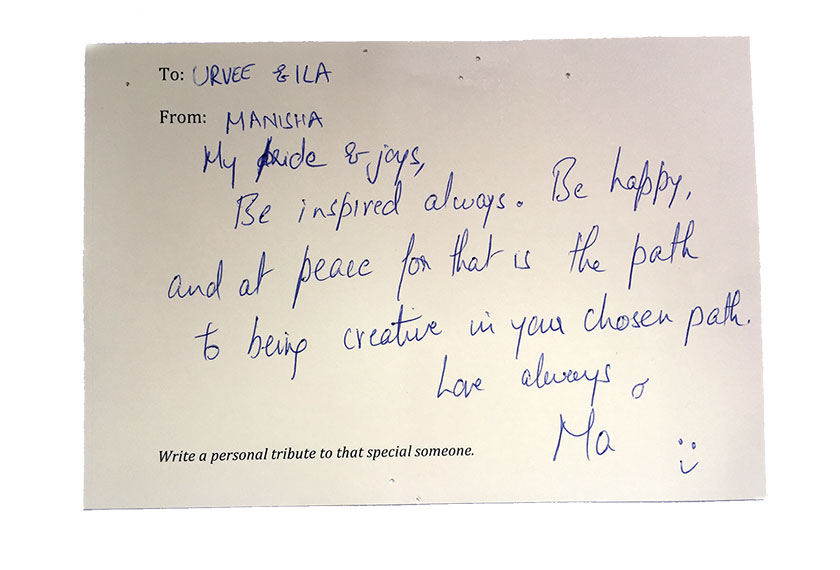 To: URVEE & ILA
From: MANISHA
My pride & joys,
Be inspired always. Be happy,
and at peace for that is the path
to being creative in your chosen path.
Love always
Ma
Write a personal tribute to that special someone.